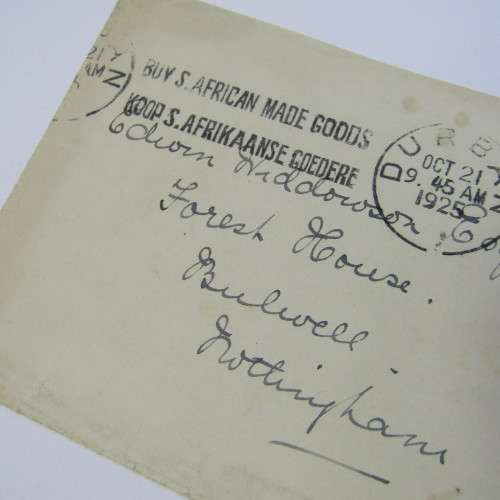 21 Y
AM
N
BUY S. AFRICAN MADE GOODS
KOOP S. AFRIKAANSE GOEDERE
DURB N
OCT 21 Y
9. 45 AM
1925
Edwin Widdowson
Forest House.
Bulwell
Nottingham